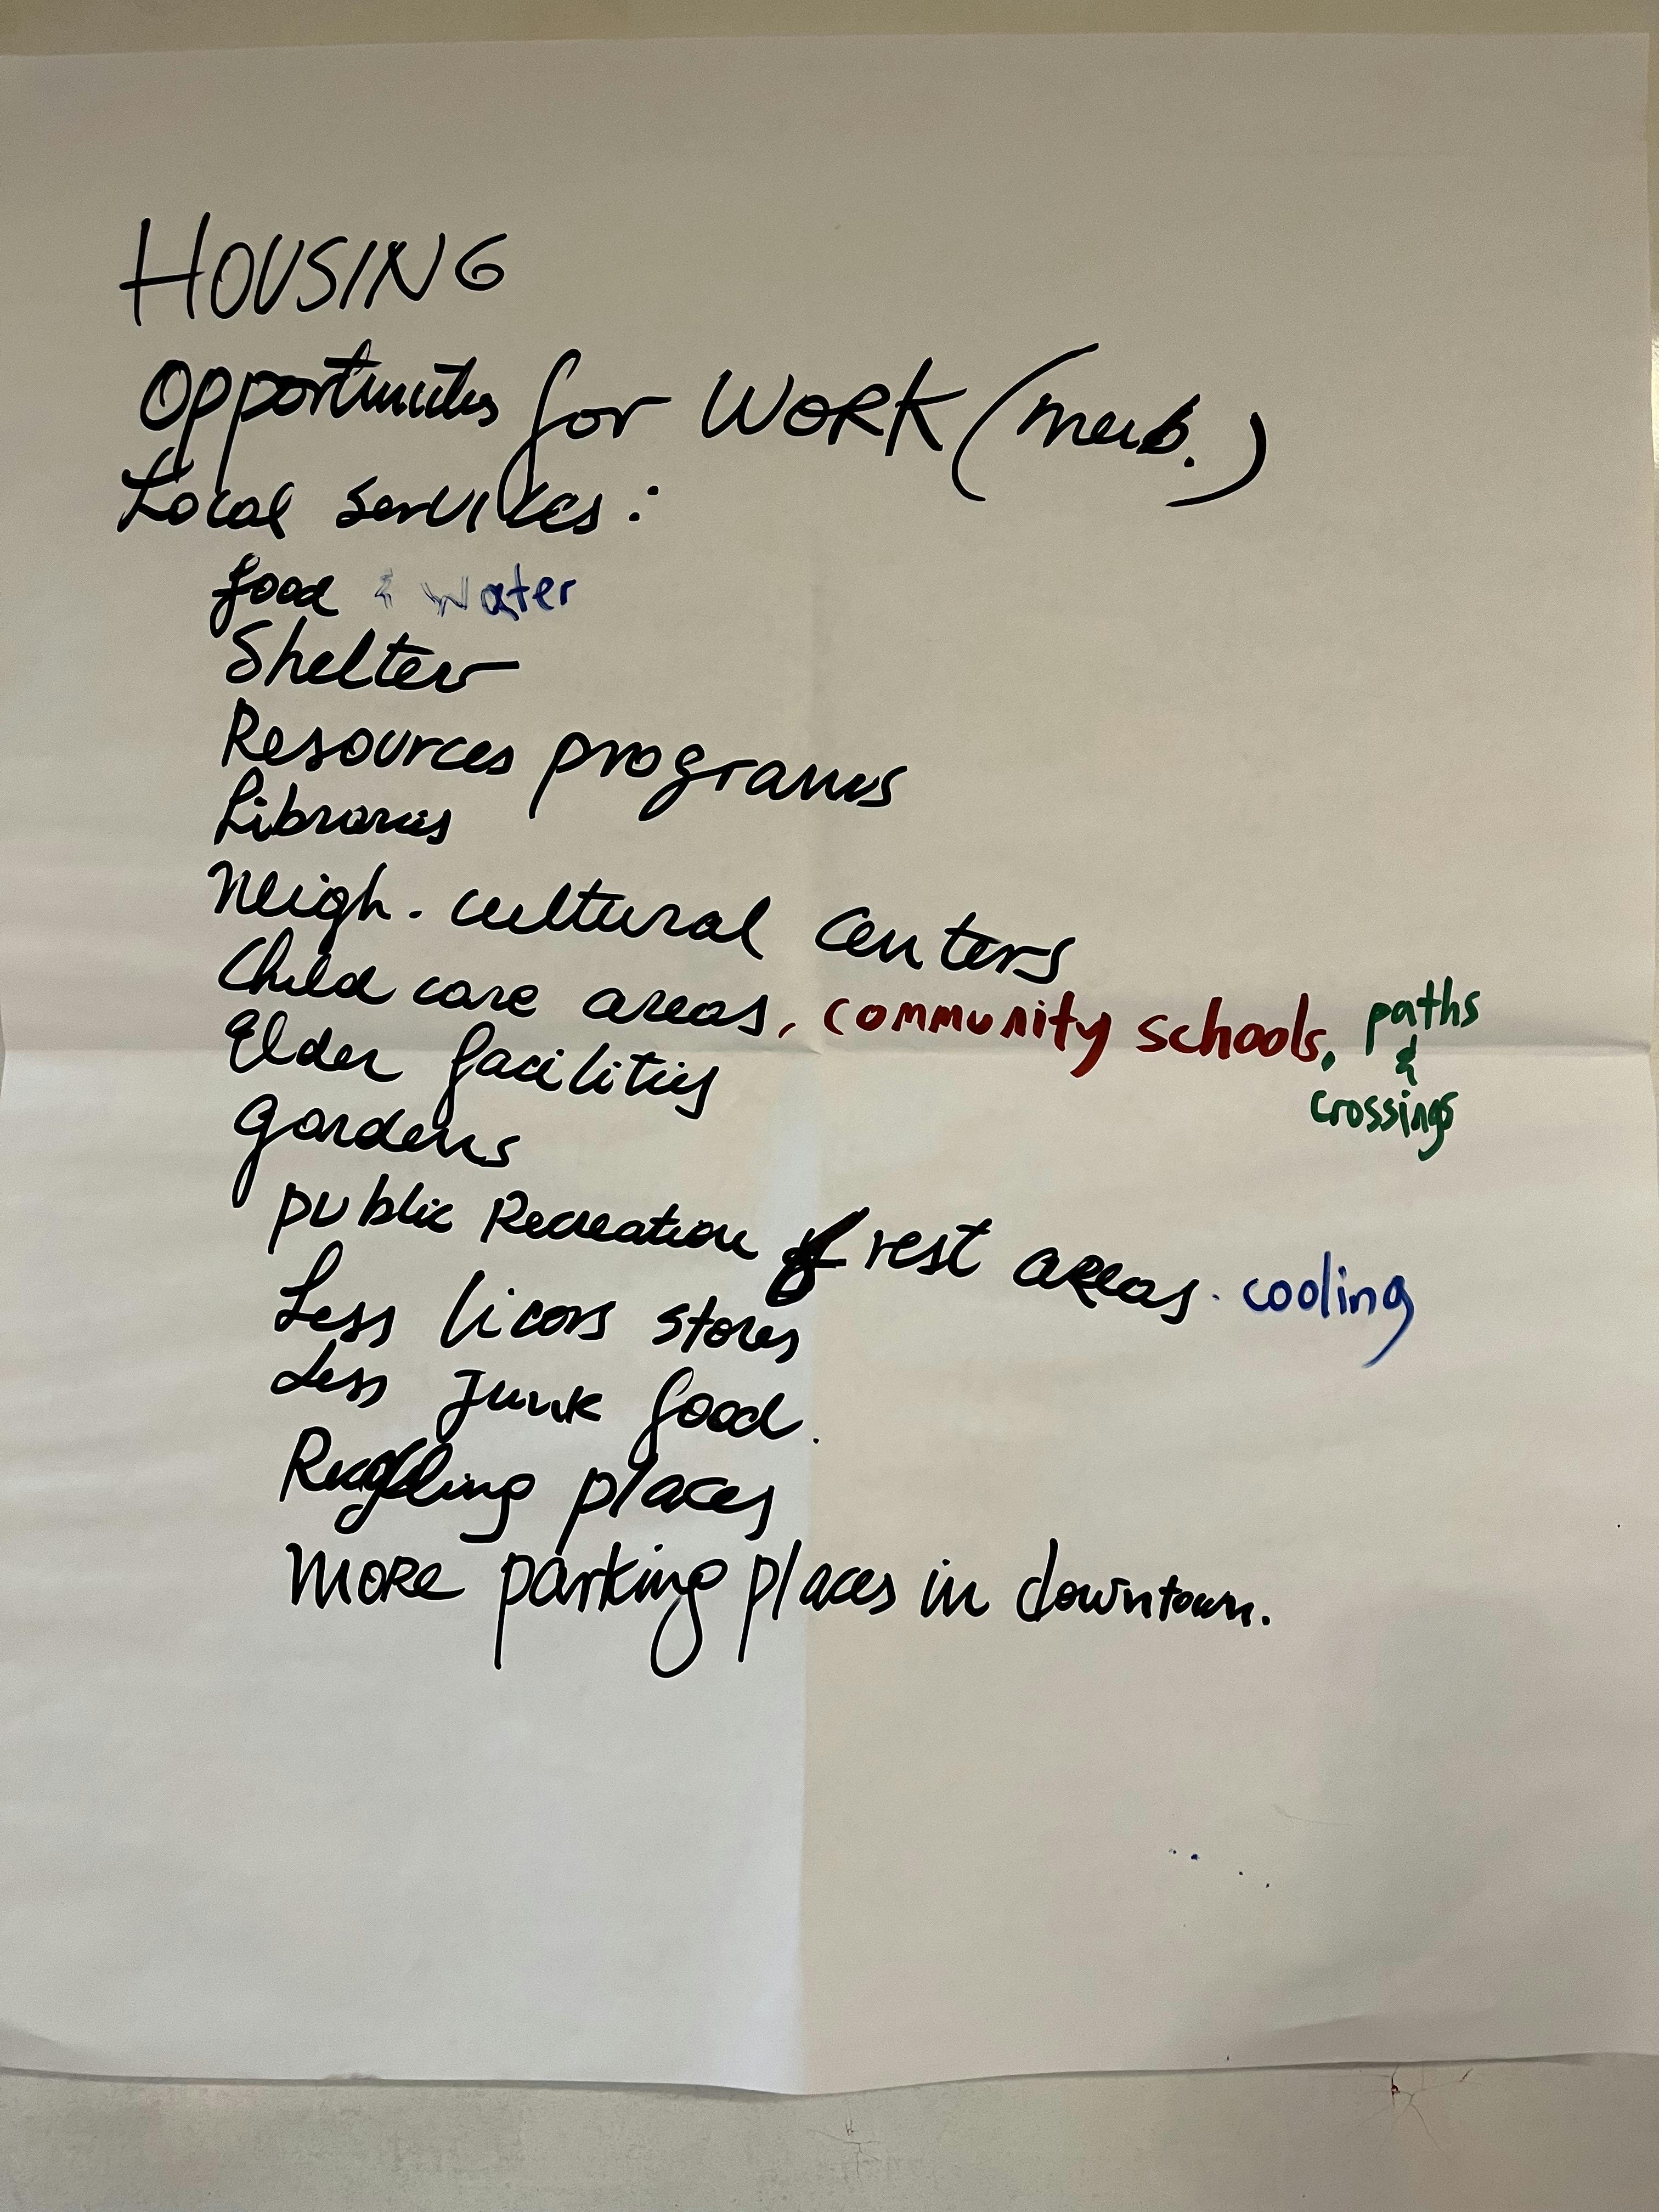 HOUSING
Opportunities for WORK
Local services:
food & water
Shelter
Resources programs
Libraries
Neigh. cultural centers
Child care areas, community schools, paths
&
crossings
Elder facilities
gardens
public Recreation & rest areas. cooling
Less licors stores
Less Junk food.
places
MORE parking places in downtown.